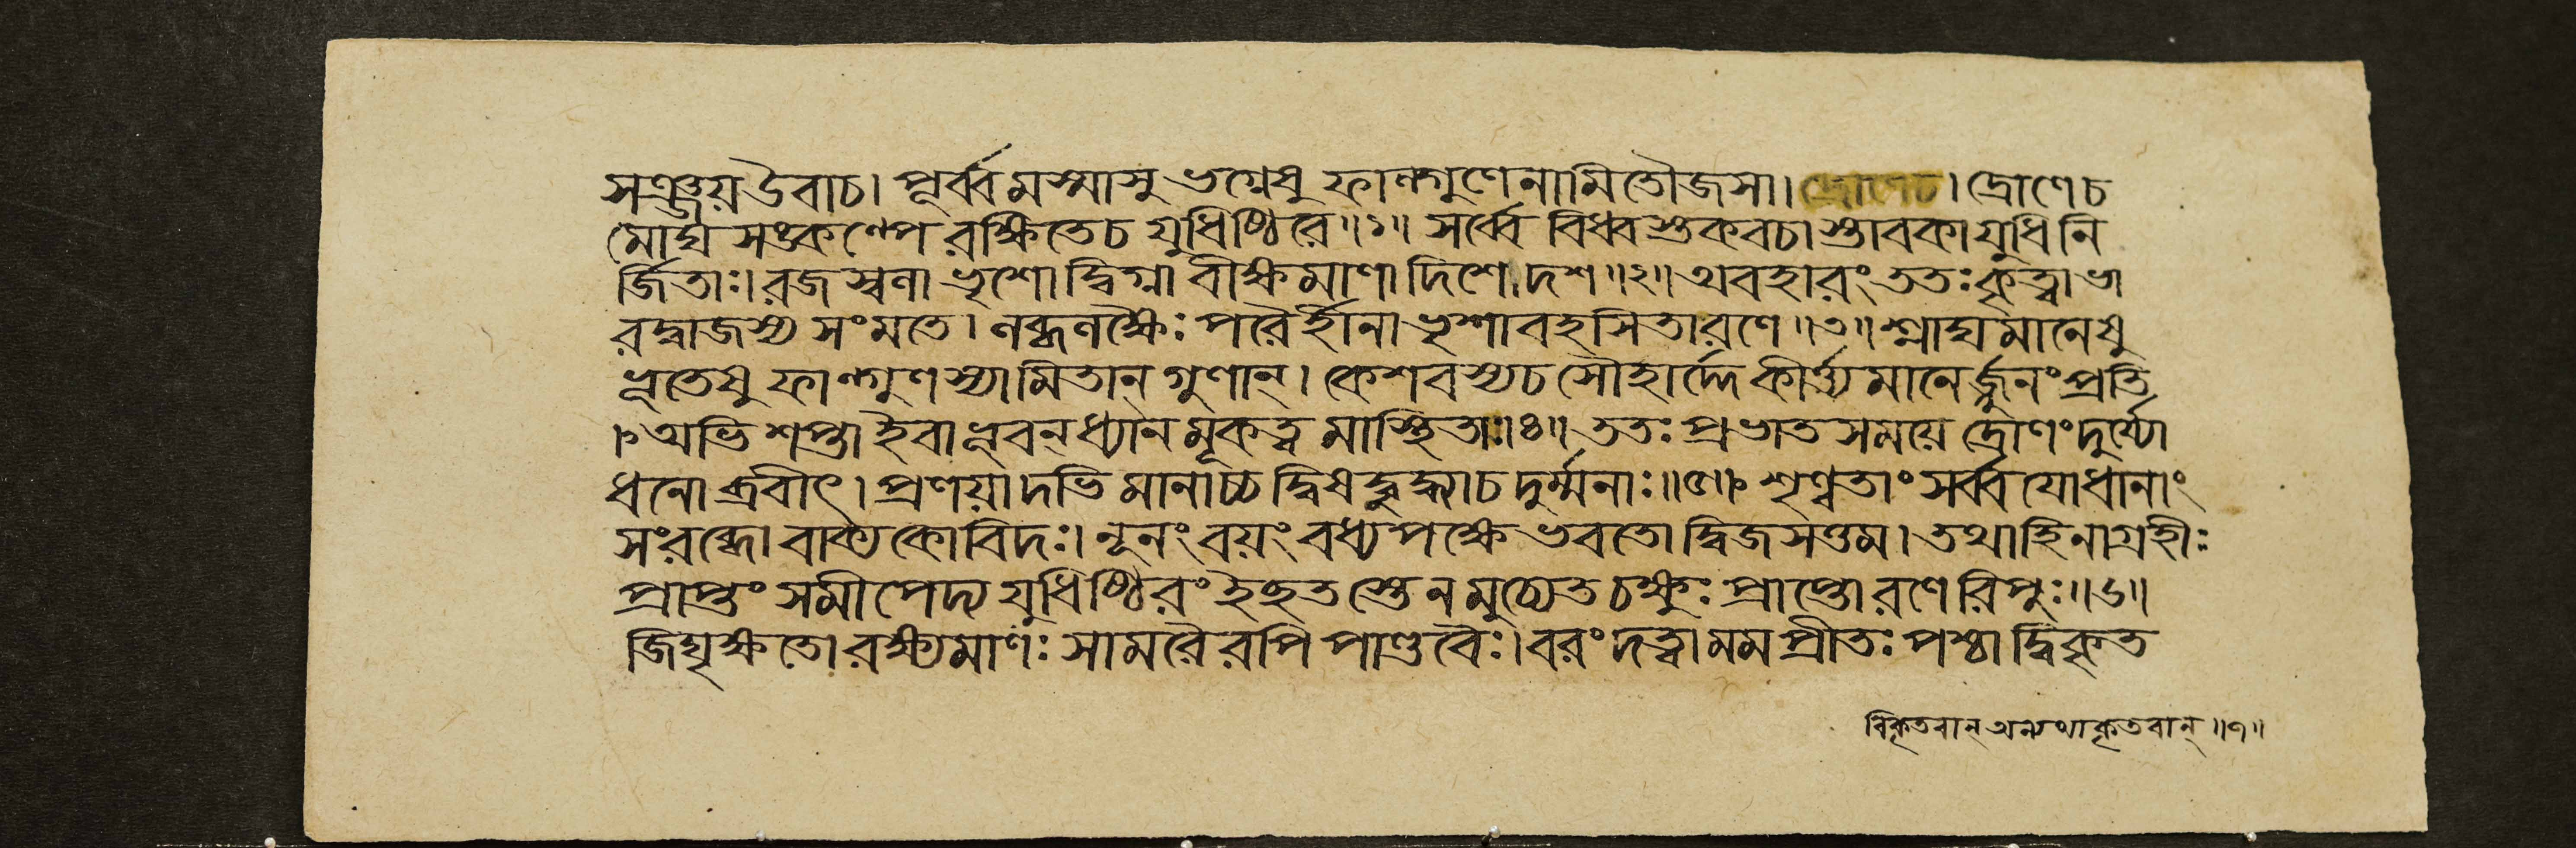 সঞ্জয় উবাচ। পূর্ব্বমস্মাসু ভগ্নেষু ফাল্গুণেনামিতৌজসা। দ্রোণেচ। দ্রোণেচ
মোঘসঙ্কল্পে রক্ষিতেচ যুধিষ্ঠিরে॥১॥ সর্ব্বে বিধ্বস্তকবচাস্তাবকা যুধি নি
র্জিতাঃ। রজস্বলা ভৃশোদ্বিগ্না বীক্ষমাণা দিশো দশ॥২॥ অবহারং ততঃ কৃত্বা ভা
রদ্বাজস্য সংমতে। লব্ধলক্ষৈঃ পরৈর্হীনা ভৃশাবহসিতা রণে॥৩॥ শ্লাঘ্যমানেষু
ভূতেষু ফাল্গুণস্যামিতান্ গুণান্। কেশবস্যচ সৌহার্দ্দে কীর্ত্যমানের্জুনং প্রতি
। অভিশপ্তা ইবাভূবন্ ধ্যানমূকত্বমাস্থিতাঃ॥৪॥ ততঃ প্রভাতসময়ে দ্রোণং দুর্য্যো
ধনো ব্রবীৎ। প্রণয়াদভিমানাচ্চ দ্বিষদ্বৃদ্ধ্যাচ দুর্ম্মনাঃ॥৫॥ শৃণ্বতাং সর্ব্বযোধানাং
সংরব্ধো বাক্যকোবিদঃ। নূনং বয়ং বধ্যপক্ষে ভবতো দ্বিজসত্তম। তথাহি নাগ্রহীঃ
প্রাপ্তং সমীপেদ্য যুধিষ্ঠিরং ইছতস্তেন মুচ্যেত চক্ষুঃ প্রাপ্তো রণে রিপুঃ॥৬॥
জিঘৃক্ষতো রক্ষ্যমাণঃ সামরৈরপি পাণ্ডবৈঃ। বরং দত্বা মম প্রীতঃ পশ্চাদ্বিকৃত
বিকৃতবান্ অন্যথাকৃতবান্॥৭॥